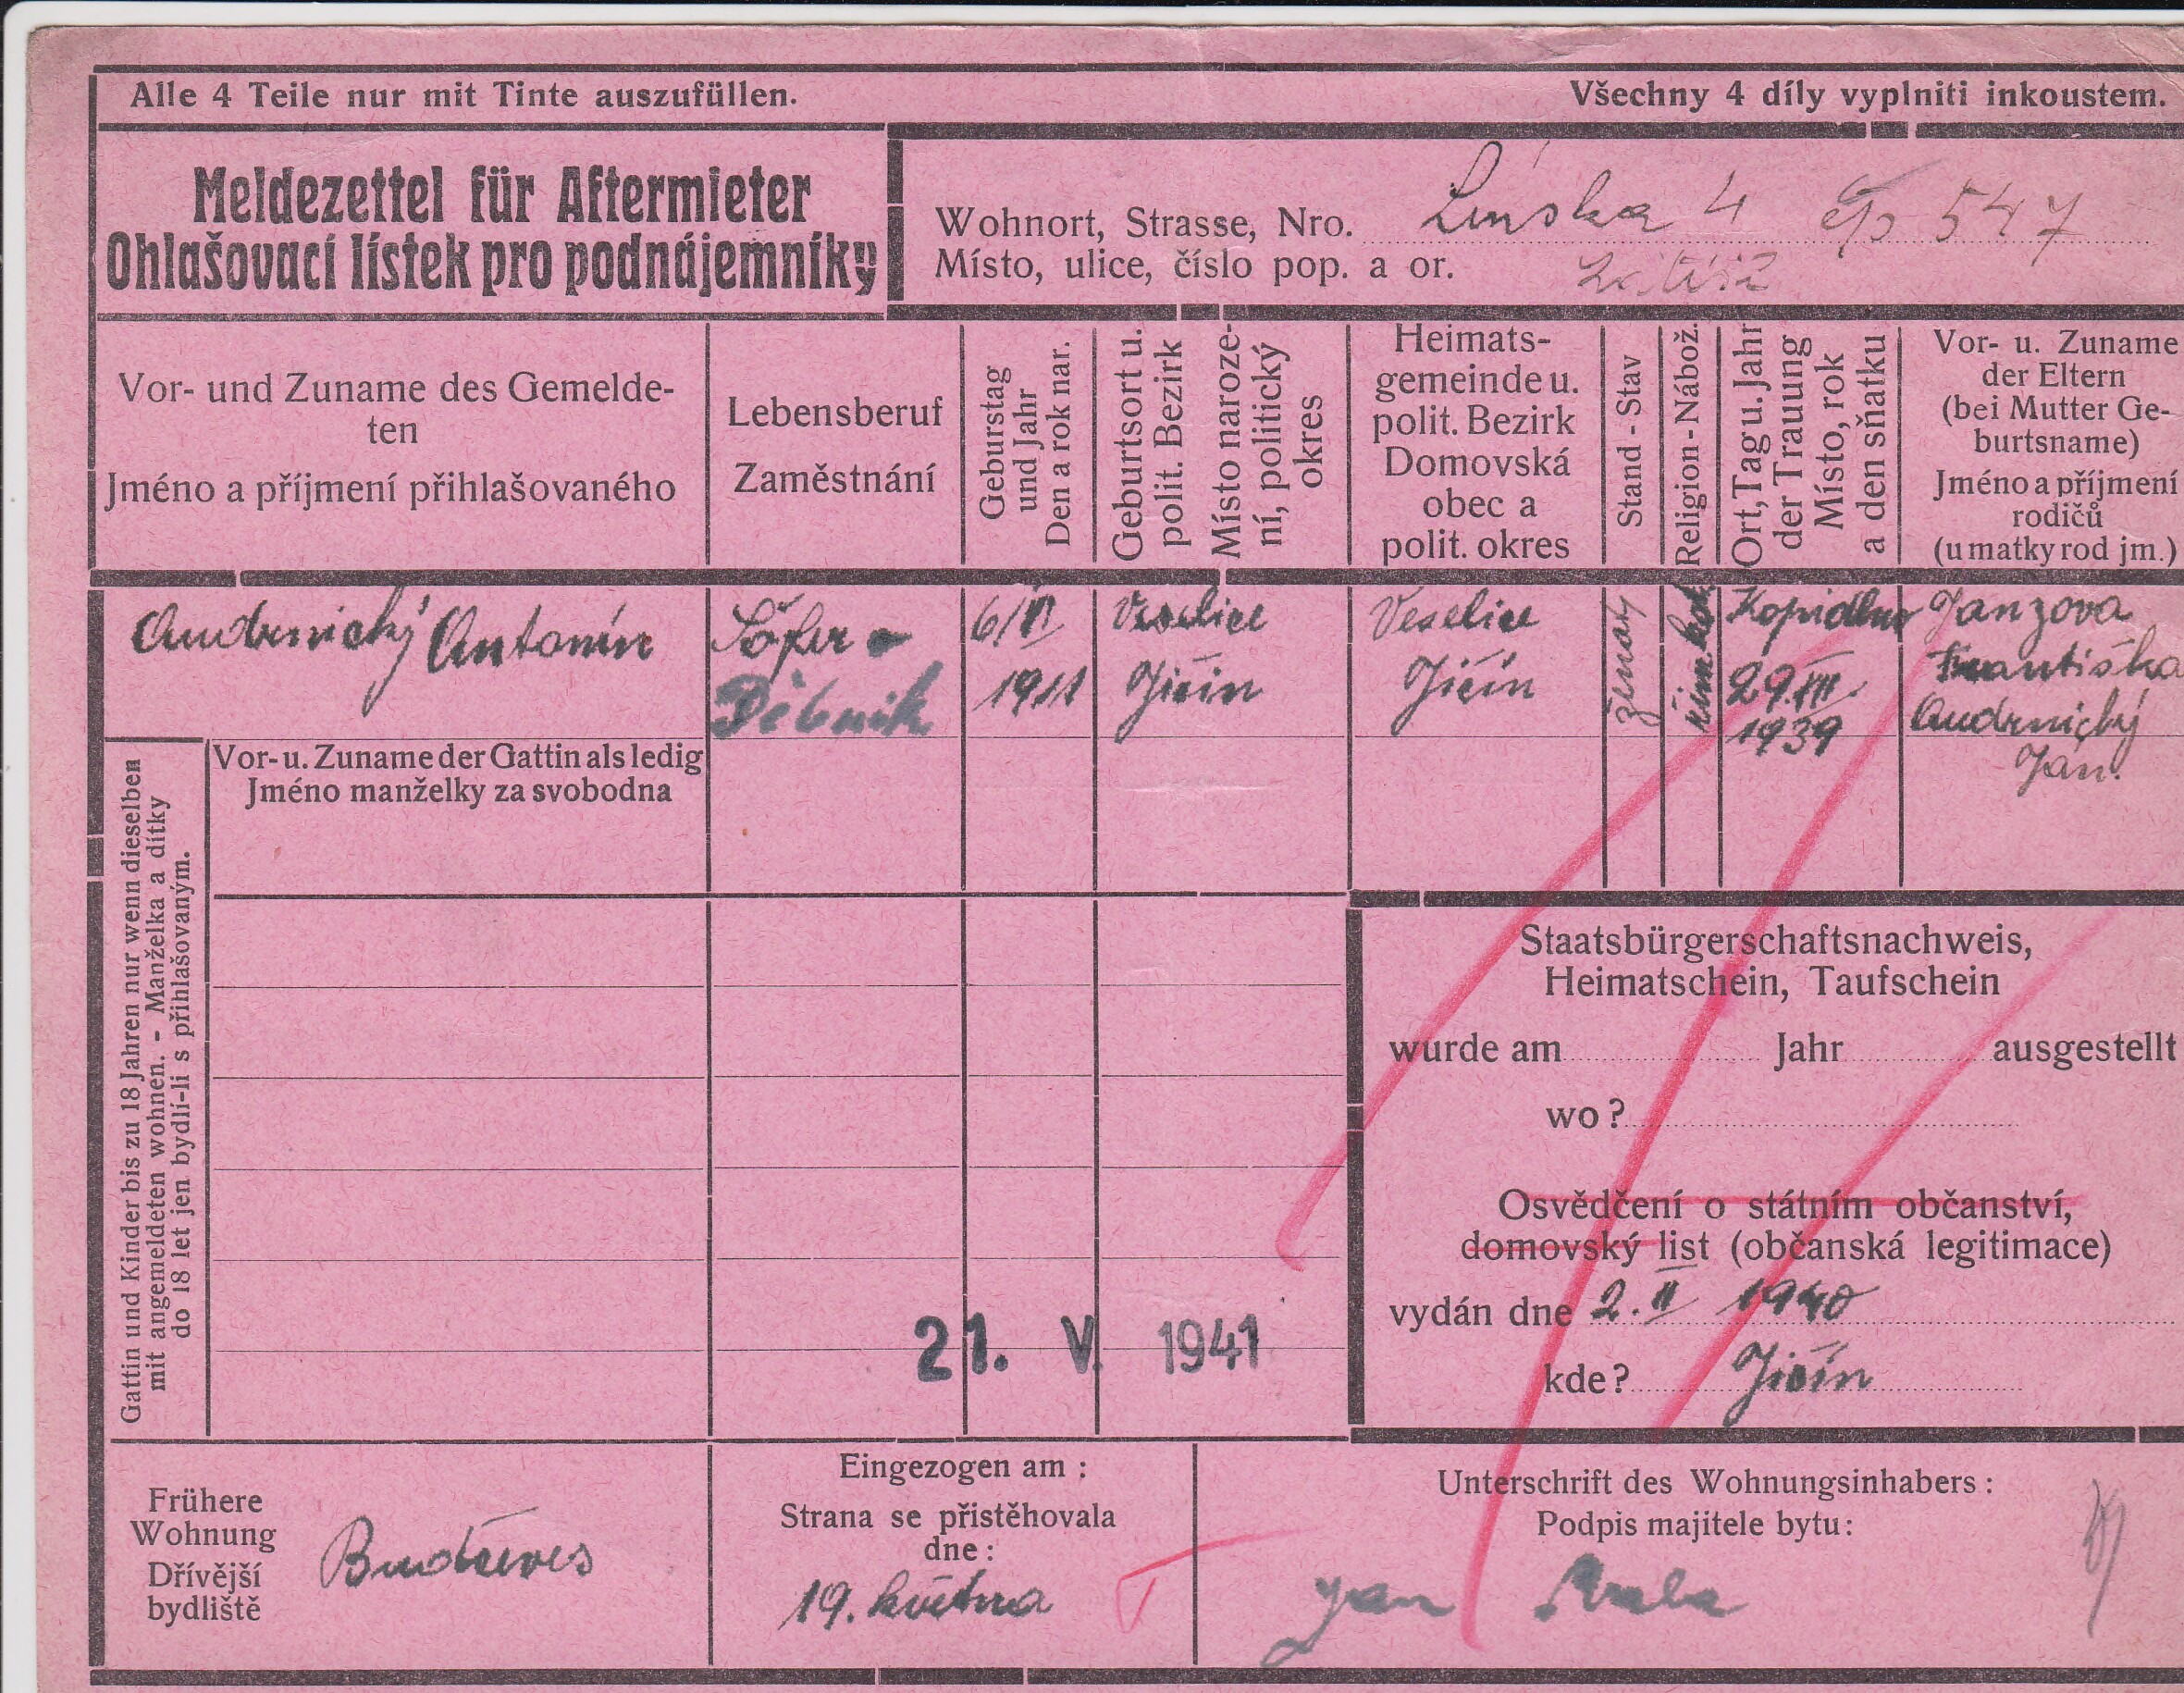 Alle 4 Teile nur mit Tinte auszufüllen.
Všechny 4 díly vyplniti inkoustem.
Meldezettel für Aftermieter
Ohlašovací lístek pro podnájemníky
Wohnort, Strasse, Nro.
Místo, ulice, číslo pop. a or.
4 čp 547
Vor- und Zuname des Gemelde-
ten
Jméno a příjmení přihlašovaného
Lebensberuf
Zaměstnání
Geburstag
und Jahr
Den a rok nar.
Geburtsort u.
polit. Bezirk
Místo naroze-
ní, politický
okres
Heimats-
gemeinde u.
polit. Bezirk
Domovská
obec a
polit. okres
Stand - Stav
Religion - Nábož.
Ort, Tag u. Jahr
der Trauung
Místo, rok
a den sňatku
Vor- u. Zuname
der Eltern
(bei Mutter Ge-
burtsname)
Jméno a příjmení
rodičů
(u matky rod jm.)
Audrnický Antonín
Šofer
Dělník
6/VI
1911
Veselice
Jičín
Veselice
Jičín
ženatý
řím. kat
Kopidlno
29.VII.
1939
Janzova
Františka
Audrnický
Jan.
Vor- u. Zuname der Gattin als ledig
Jméno manželky za svobodna
Gattin und Kinder bis zu 18 Jahren nur wenn dieselben
mit angemeldeten wohnen. - Manželka a dítky
do 18 let jen bydlí-li s přihlašovaným.
21. V. 1941
Staatsbürgerschaftsnachweis,
Heimatschein, Taufschein
wurde am Jahr ausgestellt
wo?
Osvědčení o státním občanství,
domovský list (občanská legitimace)
vydán dne 2. II 1940
kde? Jičín
Frühere
Wohnung
Dřívější
bydliště
Budčeves
Eingezogen am :
Strana se přistěhovala
dne :
19. května
Unterschrift des Wohnungsinhabers :
Podpis majitele bytu :
Jan